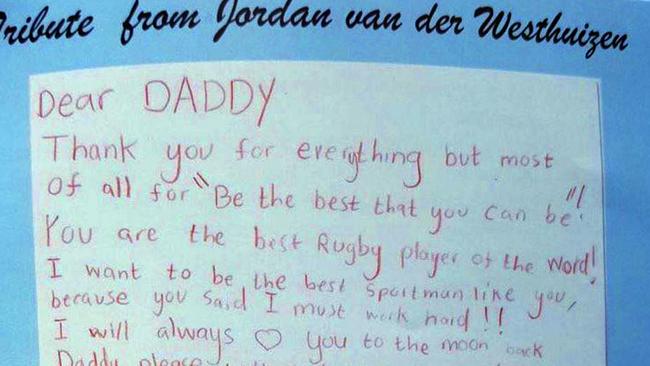 Tribute from Jordan van der Westhuizen
Dear DADDY
Thank you for everything but most
Of all for "Be the best that you can be"!
You are the best Rugby player of the Word!
I want to be the best Sportman like you,
because you said I must work hard!!
I will always ♡ you to the moon back
Daddy please